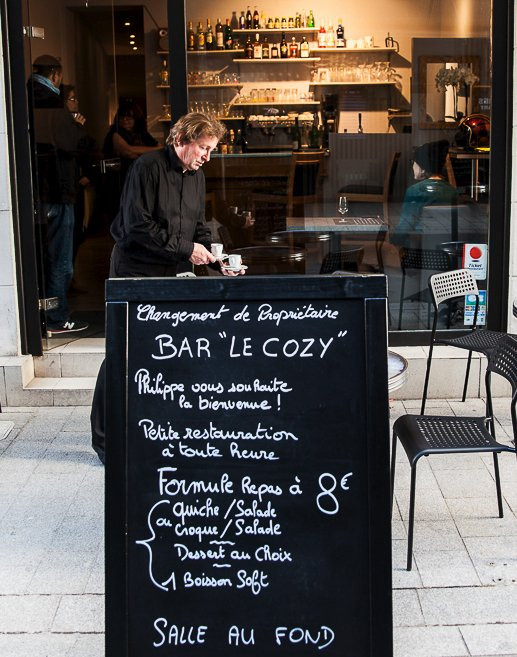 Changement de Propriétaire
BAR "LE COZY"
Philippe vous souhaite
la bienvenue !
Petite restauration
à toute heure
Formule Repas à 8€
quiche/Salade
ou
croque/Salade
Dessert au Choix
1 Boisson Soft
SALLE AU FOND